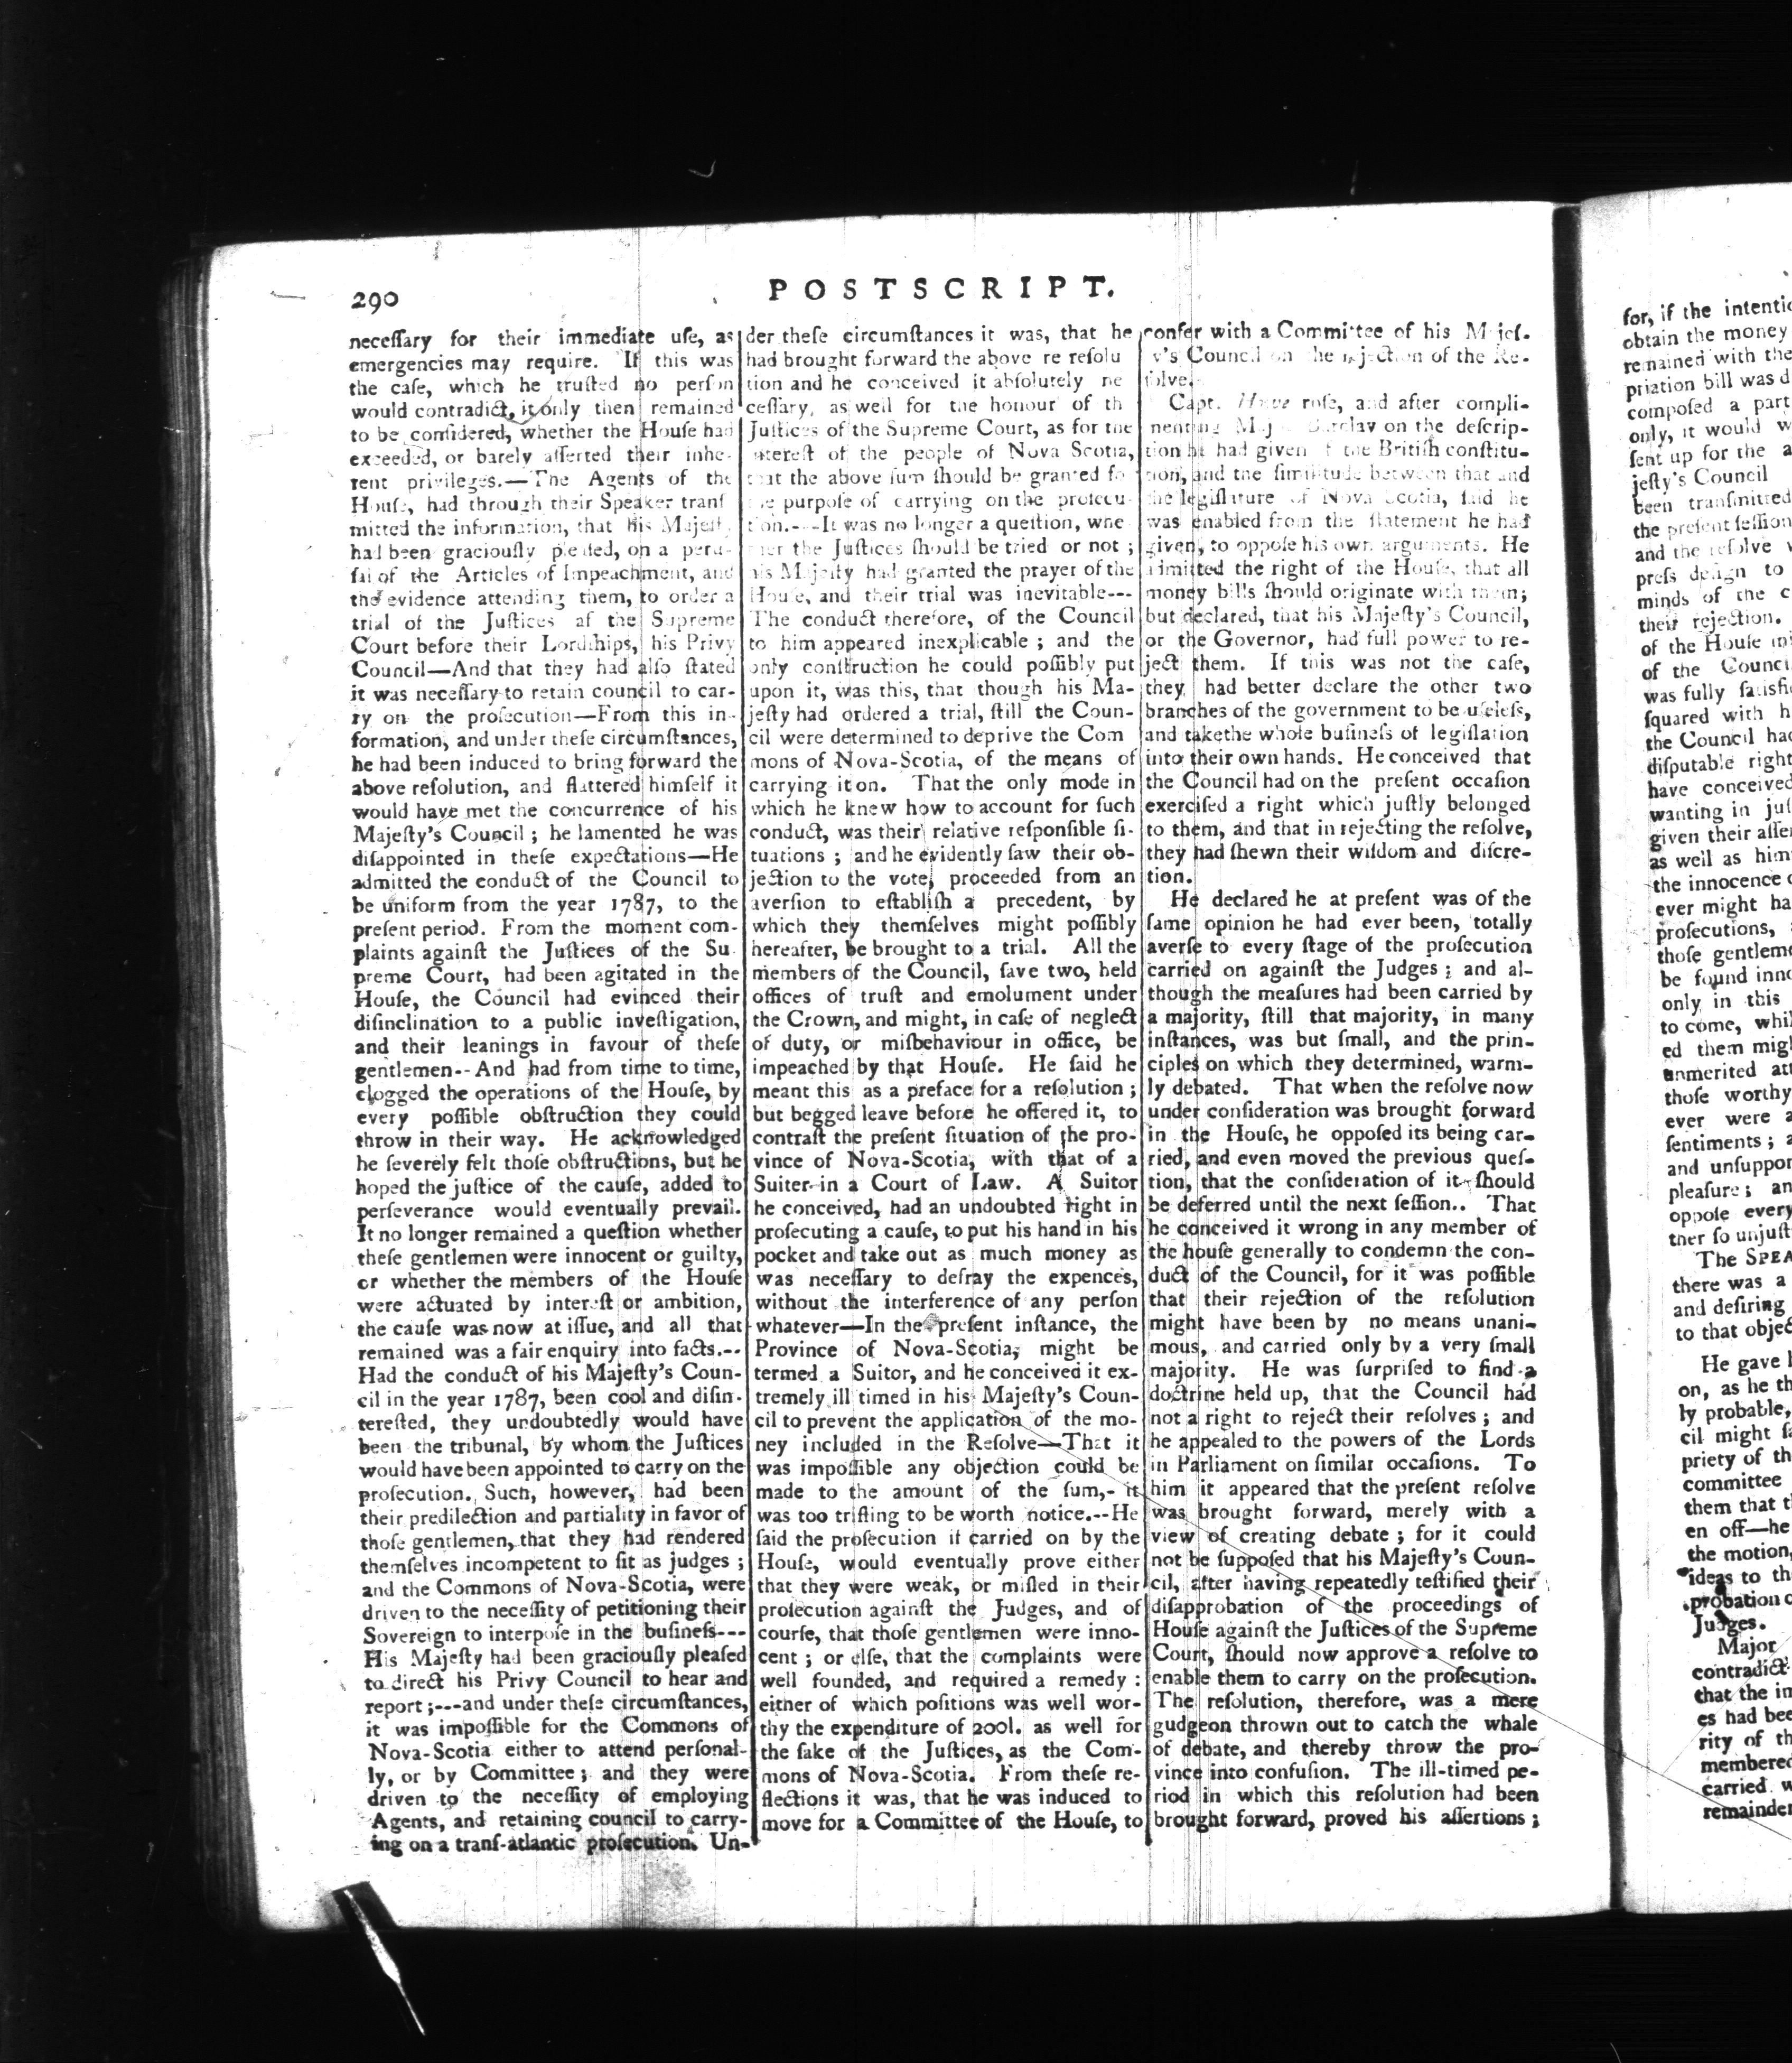 290
POSTSCRIPT.
neceſſary for their immediate uſe, as
emergencies may require. If this was
the caſe, which he truſted no perſon
would contradict, it only then remained
to be conſidered, whether the Houſe had
exceeded, or barely aſſerted their inhe-
rent privileges.—The Agents of the
Houſe, had through their Speaker tranſ
mitted the information, that his Majeſty
had been graciouſly pleaſed, on a peru-
ſal of the Articles of Impeachment, and
the evidence attending them, to order a
trial of the Juſtices af the Supreme
Court before their Lordſhips, his Privy
Council—And that they had alſo ſtated
it was neceſſary to retain council to car-
ry on the proſecution—From this in-
formation, and under theſe circumſtances,
he had been induced to bring forward the
above reſolution, and flattered himſelf it
would have met the concurrence of his
Majeſty's Council; he lamented he was
diſappointed in theſe expectations—He
admitted the conduct of the Council to
be uniform from the year 1787, to the
preſent period. From the moment com-
plaints againſt the Juſtices of the Su-
preme Court, had been agitated in the
Houſe, the Council had evinced their
diſinclination to a public inveſtigation,
and their leanings in favour of theſe
gentlemen--And had from time to time,
clogged the operations of the Houſe, by
every poſſible obſtruction they could
throw in their way. He acknowledged
he ſeverely felt thoſe obſtructions, but he
hoped the juſtice of the cauſe, added to
perſeverance would eventually prevail.
It no longer remained a queſtion whether
theſe gentlemen were innocent or guilty,
or whether the members of the Houſe
were actuated by intereſt or ambition,
the cauſe was now at iſſue, and all that
remained was a fair enquiry into facts.--
Had the conduct of his Majeſty's Coun-
cil in the year 1787, been cool and diſin-
tereſted, they undoubtedly would have
been the tribunal, by whom the Juſtices
would have been appointed to carry on the
proſecution. Such, however, had been
their predilection and partiality in favor of
thoſe gentlemen, that they had rendered
themſelves incompetent to ſit as judges;
and the Commons of Nova-Scotia, were
driven to the neceſſity of petitioning their
Sovereign to interpoſe in the buſineſs---
His Majeſty had been graciouſly pleaſed
to direct his Privy Council to hear and
report;---and under theſe circumſtances,
it was impoſſible for the Commons of
Nova-Scotia either to attend perſonal-
ly, or by Committee; and they were
driven to the neceſſity of employing
Agents, and retaining council to carry-
ing on a tranſ-atlantic proſecution. Un-
der theſe circumſtances it was, that he
had brought forward the above re reſolu
tion and he conceived it abſolutely ne
ceſſary, as well for the honour of th
Juſtices of the Supreme Court, as for the
intereſt of the people of Nova Scotia,
that the above ſum ſhould be granted fo
the purpoſe of carrying on the proſecu-
tion.---It was no longer a queſtion, whe
ther the Juſtices ſhould be tried or not;
his Majeſty had granted the prayer of the
Houſe, and their trial was inevitable---
The conduct therefore, of the Council
to him appeared inexplicable; and the
only conſtruction he could poſſibly put
upon it, was this, that though his Ma-
jeſty had ordered a trial, ſtill the Coun-
cil were determined to deprive the Com
mons of Nova-Scotia, of the means of
carrying it on. That the only mode in
which he knew how to account for ſuch
conduct, was their relative reſponſible ſi-
tuations; and he evidently ſaw their ob-
jection to the vote, proceeded from an
averſion to eſtabliſh a precedent, by
which they themſelves might poſſibly
hereafter, be brought to a trial. All the
members of the Council, ſave two, held
offices of truſt and emolument under
the Crown, and might, in caſe of neglect
of duty, or miſbehaviour in office, be
impeached by that Houſe. He ſaid he
meant this as a preface for a reſolution;
but begged leave before he offered it, to
contraſt the preſent ſituation of the pro-
vince of Nova-Scotia, with that of a
Suiter in a Court of Law. A Suitor
he conceived, had an undoubted right in
proſecuting a cauſe, to put his hand in his
pocket and take out as much money as
was neceſſary to defray the expences,
without the interference of any perſon
whatever—In the preſent inſtance, the
Province of Nova-Scotia, might be
termed a Suitor, and he conceived it ex-
tremely ill timed in his Majeſty's Coun-
cil to prevent the application of the mo-
ney included in the Reſolve—That it
was impoſſible any objection could be
made to the amount of the ſum,- it
was too trifling to be worth notice.--He
ſaid the proſecution if carried on by the
Houſe, would eventually prove either
that they were weak, or miſled in their
proſecution againſt the Judges, and of
courſe, that thoſe gentlemen were inno-
cent; or elſe, that the complaints were
well founded, and required a remedy:
either of which poſitions was well wor-
thy the expenditure of 200l. as well for
the ſake of the Juſtices, as the Com-
mons of Nova-Scotia. From theſe re-
flections it was, that he was induced to
move for a Committee of the Houſe, to
confer with a Committee of his Majeſ-
y's Council on the rejection of the Re-
ſolve.
Capt. Howe roſe, and after compli-
menting Major Barclay on the deſcrip-
tion he had given of the Britiſh conſtitu-
tion, and the ſimilitude between that and
the legiſlature of Nova Scotia, ſaid he
was enabled from the ſtatement he had
given, to oppoſe his own arguments. He
admitted the right of the Houſe, that all
money bills ſhould originate with them;
but declared, that his Majeſty's Council,
or the Governor, had full power to re-
ject them. If this was not the caſe,
they had better declare the other two
branches of the government to be uſeleſs,
and takethe whole buſineſs of legiſlation
into their own hands. He conceived that
the Council had on the preſent occaſion
exerciſed a right which juſtly belonged
to them, and that in rejecting the reſolve,
they had ſhewn their wiſdom and diſcre-
tion.
He declared he at preſent was of the
ſame opinion he had ever been, totally
averſe to every ſtage of the proſecution
carried on againſt the Judges; and al-
though the meaſures had been carried by
a majority, ſtill that majority, in many
inſtances, was but ſmall, and the prin-
ciples on which they determined, warm-
ly debated. That when the reſolve now
under conſideration was brought forward
in the Houſe, he oppoſed its being car-
ried, and even moved the previous queſ-
tion, that the conſideration of it ſhould
be deferred until the next ſeſſion.. That
he conceived it wrong in any member of
the houſe generally to condemn the con-
duct of the Council, for it was poſſible
that their rejection of the reſolution
might have been by no means unani-
mous, and carried only by a very ſmall
majority. He was ſurpriſed to find a
doctrine held up, that the Council had
not a right to reject their reſolves; and
he appealed to the powers of the Lords
in Parliament on ſimilar occaſions. To
him it appeared that the preſent reſolve
was brought forward, merely with a
view of creating debate; for it could
not be ſuppoſed that his Majeſty's Coun-
cil, after having repeatedly teſtified their
diſapprobation of the proceedings of
Houſe againſt the Juſtices of the Supreme
Court, ſhould now approve a reſolve to
enable them to carry on the proſecution.
The reſolution, therefore, was a mere
gudgeon thrown out to catch the whale
of debate, and thereby throw the pro-
vince into confuſion. The ill-timed pe-
riod in which this reſolution had been
brought forward, proved his aſſertions;
for, if the intentio
obtain the money
remained with the
priation bill was d
compoſed a part
only, it would w
ſent up for the a
jeſty's Council
been tranſmitted
the preſent ſeſſion
and the reſolve v
preſs deſign to
minds of the c
their rejection.
of the Houſe mi
of the Counci
was fully ſatisfi
ſquared with h
the Council had
diſputable right
have conceived
wanting in juſ
given their aſſe
as well as him
the innocence o
ever might ha
proſecutions,
thoſe gentleme
be found inno
only in this
to come, whil
ed them migh
unmerited att
thoſe worthy
ever were a
ſentiments; a
and unſuppor
pleaſure; an
oppoſe every
ther ſo unjuſt
The SPEA
there was a
and deſiring
to that objec
He gave h
on, as he th
ly probable,
cil might ſa
priety of th
committee
them that t
en off—he
the motion,
ideas to the
probation o
Judges.
Major
contradict
that the in
es had bee
rity of th
membered
carried w
remainder